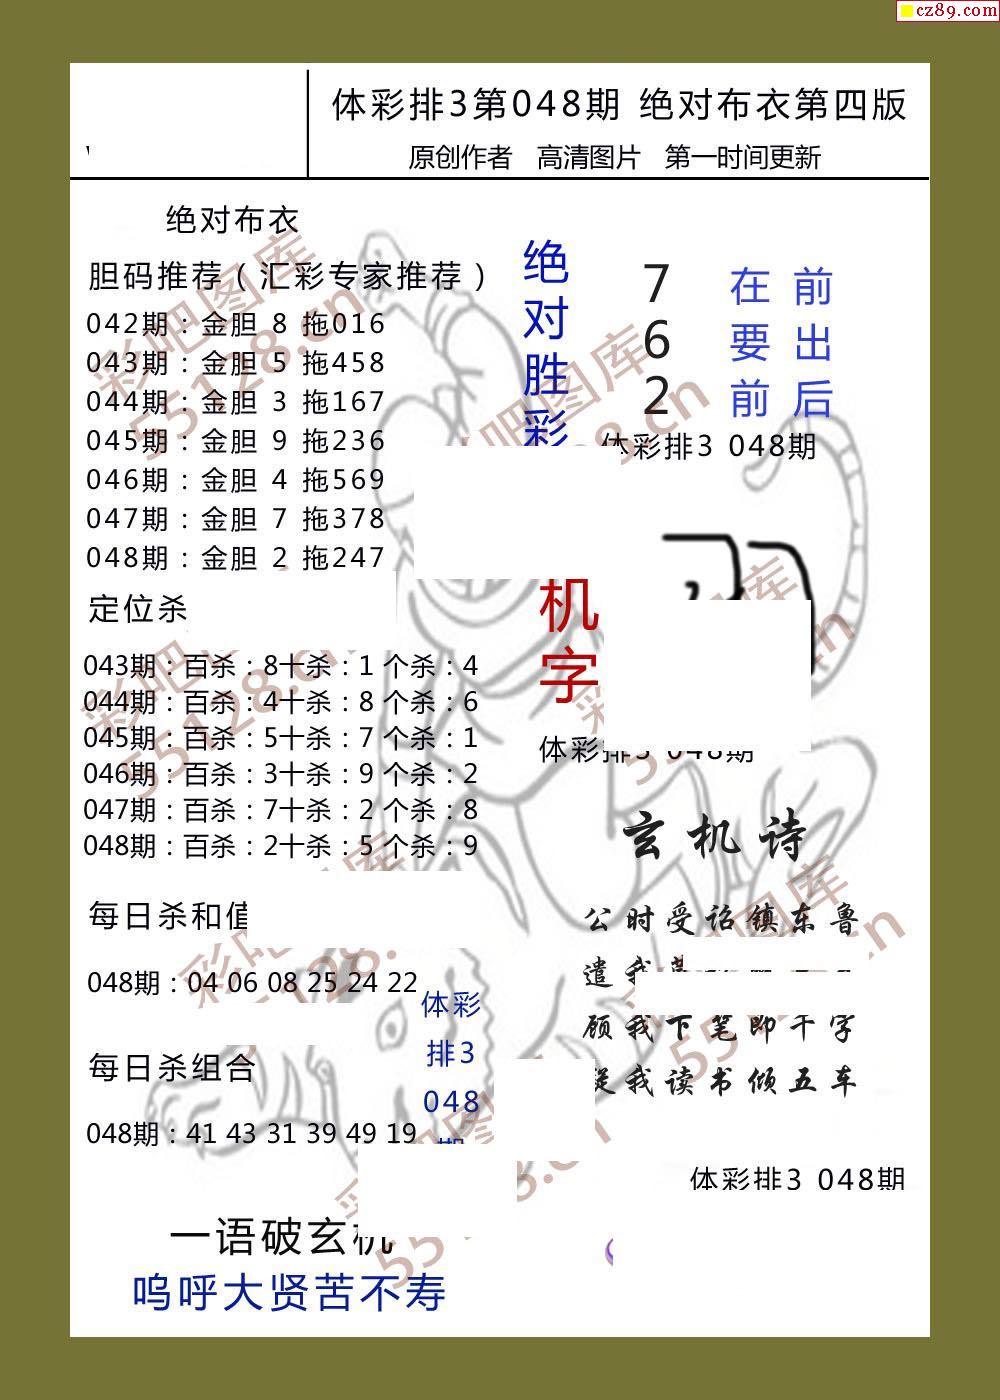 cz89.com
体彩排3第048期 绝对布衣第四版
原创作者 高清图片 第一时间更新
绝对布衣
胆码推荐（汇彩专家推荐）
042期：金胆 8 拖016
043期：金胆 5 拖458
044期：金胆 3 拖167
045期：金胆 9 拖236
046期：金胆 4 拖569
047期：金胆 7 拖378
048期：金胆 2 拖247
定位杀
043期：百杀：8十杀：1 个杀：4
044期：百杀：4十杀：8 个杀：6
045期：百杀：5十杀：7 个杀：1
046期：百杀：3十杀：9 个杀：2
047期：百杀：7十杀：2 个杀：8
048期：百杀：2十杀：5 个杀：9
每日杀和值
048期：04 06 08 25 24 22
每日杀组合
048期：41 43 31 39 49 19
体彩
排3
048
期
一语破玄机
呜呼大贤苦不寿
绝对胜彩
7
6
2
在要前
前出后
体彩排3 048期
机字
体彩排3 048期
玄机诗
公时受诏镇东鲁
遣我
顾我下笔即千字
我读书倾五车
体彩排3 048期
彩吧图库
55128.cn
彩吧图库
55128.cn
吧图库